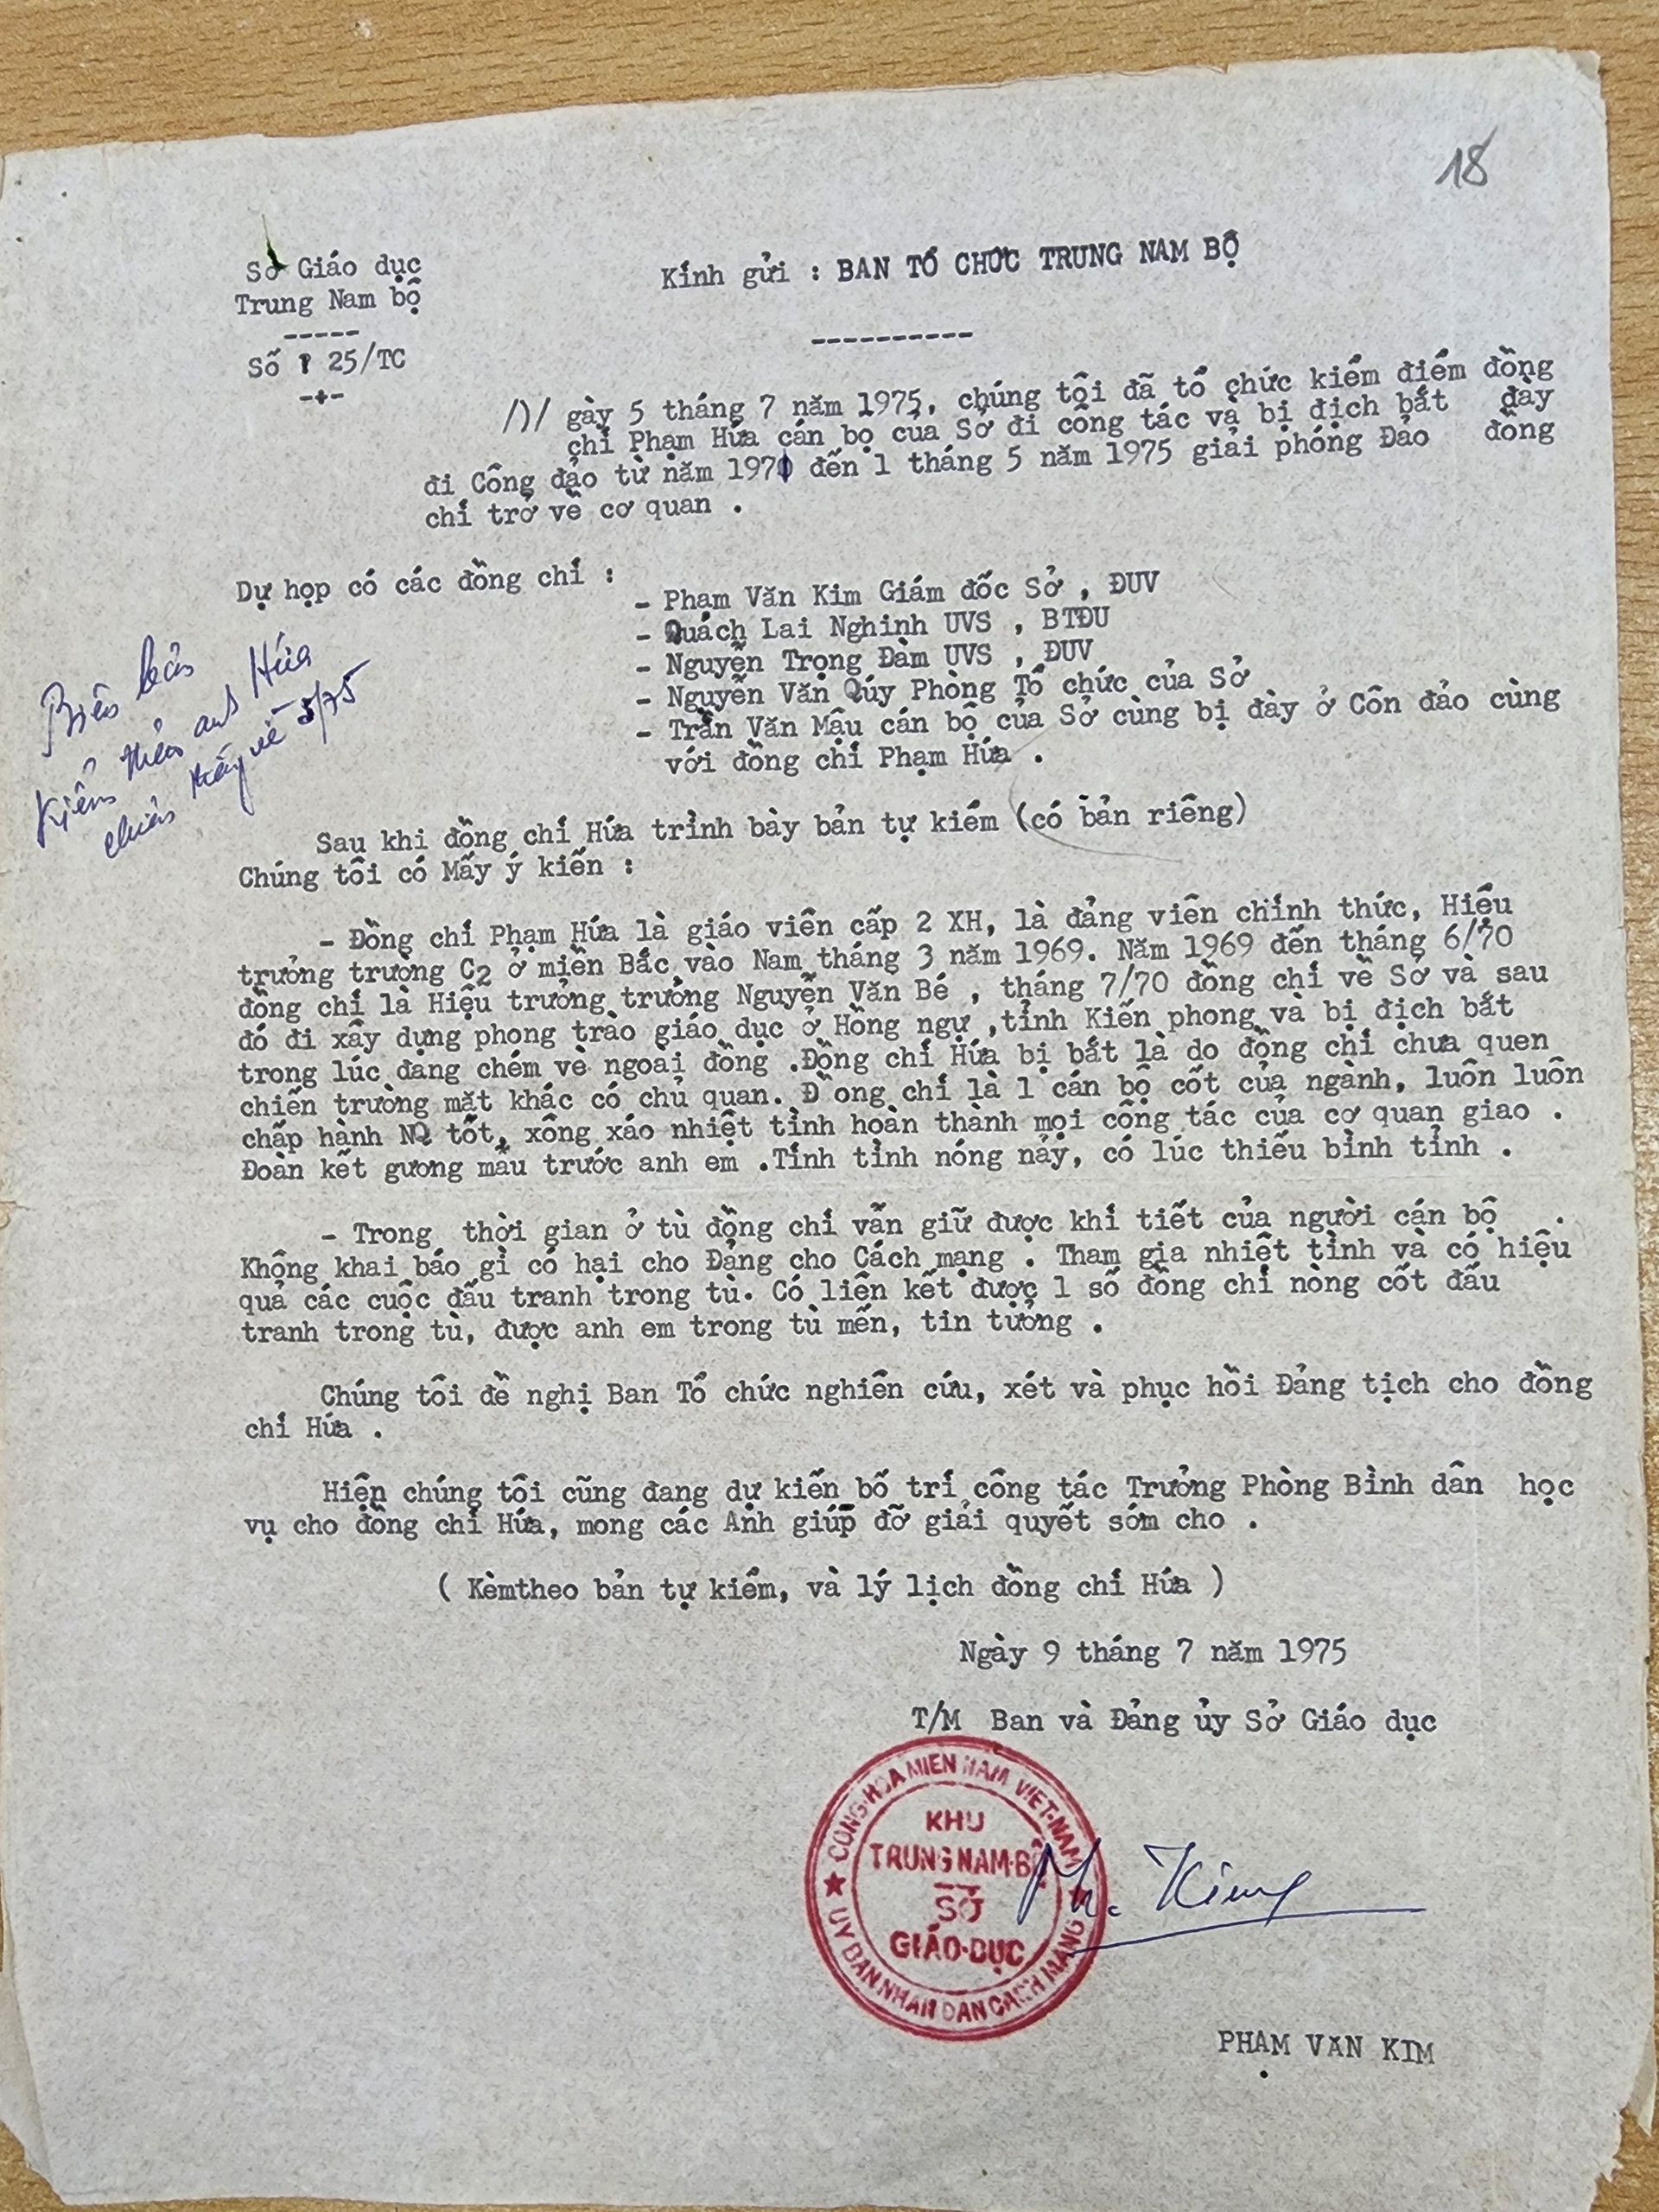 18
Sở Giáo dục
Trung Nam bộ
-----
Số 25/TC
-+-
Kính gửi : BAN TỔ CHỨC TRUNG NAM BỘ
----------
/)/ gày 5 tháng 7 năm 1975, chúng tôi đã tổ chức kiểm điểm đồng
chí Phạm Hứa cán bọ của Sở đi công tác và bị địch bắt đày
đi Công đảo từ năm 1970 đến 1 tháng 5 năm 1975 giải phóng Đảo đồng
chí trở về cơ quan .
Dự họp có các đồng chí :
- Phạm Văn Kim Giám đốc Sở , ĐUV
- Quách Lai Nghinh UVS , BTĐU
- Nguyễn Trọng Đàm UVS , ĐUV
- Nguyễn Văn Qúy Phòng Tổ chức của Sở
- Trần Văn Mậu cán bộ của Sở cùng bị đày ở Côn đảo cùng
với đồng chí Phạm Hứa .
Biên bản
Kiểm thảo anh Hứa
về 5/75
Sau khi đồng chí Hứa trình bày bản tự kiểm (có bản riêng)
Chúng tôi có Mấy ý kiến :
- Đồng chí Phạm Hứa là giáo viên cấp 2 XH, là đảng viên chính thức, Hiệu
trưởng trường C2 ở miền Bắc vào Nam tháng 3 năm 1969. Năm 1969 đến tháng 6/70
đồng chí là Hiệu trưởng trường Nguyễn Văn Bé , tháng 7/70 đồng chí về Sở và sau
đó đi xây dựng phong trào giáo dục ở Hồng ngự ,tỉnh Kiến phong và bị địch bắt
trong lúc đang chém vè ngoài đồng .Đồng chí Hứa bị bắt là do đồng chí chưa quen
chiến trường mặt khác có chủ quan. Đồng chí là 1 cán bộ cốt của ngành, luôn luôn
chấp hành NQ tốt, xông xáo nhiệt tình hoàn thành mọi công tác của cơ quan giao .
Đoàn kết gương mẫu trước anh em .Tính tình nóng nảy, có lúc thiếu bình tỉnh .
- Trong thời gian ở tù đồng chí vẫn giữ được khí tiết của người cán bộ .
Không khai báo gì có hại cho Đảng cho Cách mạng . Tham gia nhiệt tình và có hiệu
quả các cuộc đấu tranh trong tù. Có liên kết được 1 số đồng chí nòng cốt đấu
tranh trong tù, được anh em trong tù mến, tin tưởng .
Chúng tôi đề nghị Ban Tổ chức nghiên cứu, xét và phục hồi Đảng tịch cho đồng
chí Hứa .
Hiện chúng tôi cũng đang dự kiến bố trí công tác Trưởng Phòng Bình dân học
vụ cho đồng chí Hứa, mong các Anh giúp đỡ giải quyết sớm cho .
( Kèmtheo bản tự kiểm, và lý lịch đồng chí Hứa )
Ngày 9 tháng 7 năm 1975
T/M Ban và Đảng ủy Sở Giáo dục
CỘNG·HÒA MIỀN NAM VIỆT·NAM
KHU
TRUNG NAM·BỘ
SỞ
GIÁO·DỤC
ỦY BAN NHÂN DÂN CÁCH MẠNG
Ph. Kim
PHẠM VĂN KIM